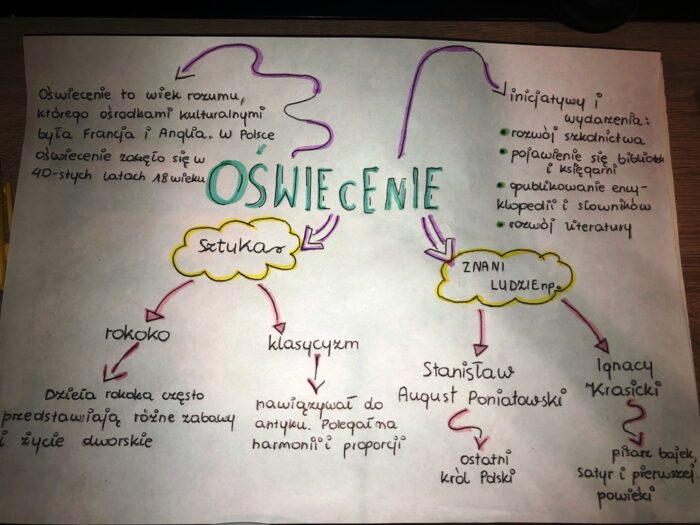 Oświecenie to wiek rozumu,
którego ośrodkami kulturalnymi
była Francja i Anglia. W Polsce
oświecenie zaczęło się w
40-stych latach 18 wieku
inicjatywy i
wydarzenia:
• rozwój szkolnictwa
• pojawienie się bibliotek
i księgarni
• opublikowanie ency-
klopedii i słowników
• rozwój literatury
OŚWIECENIE
Sztuka
ZNANI
LUDZIE np.
rokoko
klasycyzm
Dzieła rokoka często
przedstawiają różne zabawy
i życie dworskie
nawiązywał do
antyku. Polegał na
harmonii i proporcji
Stanisław
August Poniatowski
ostatni
król Polski
Ignacy
Krasicki
pisarz bajek,
satyr i pierwszej
powieści